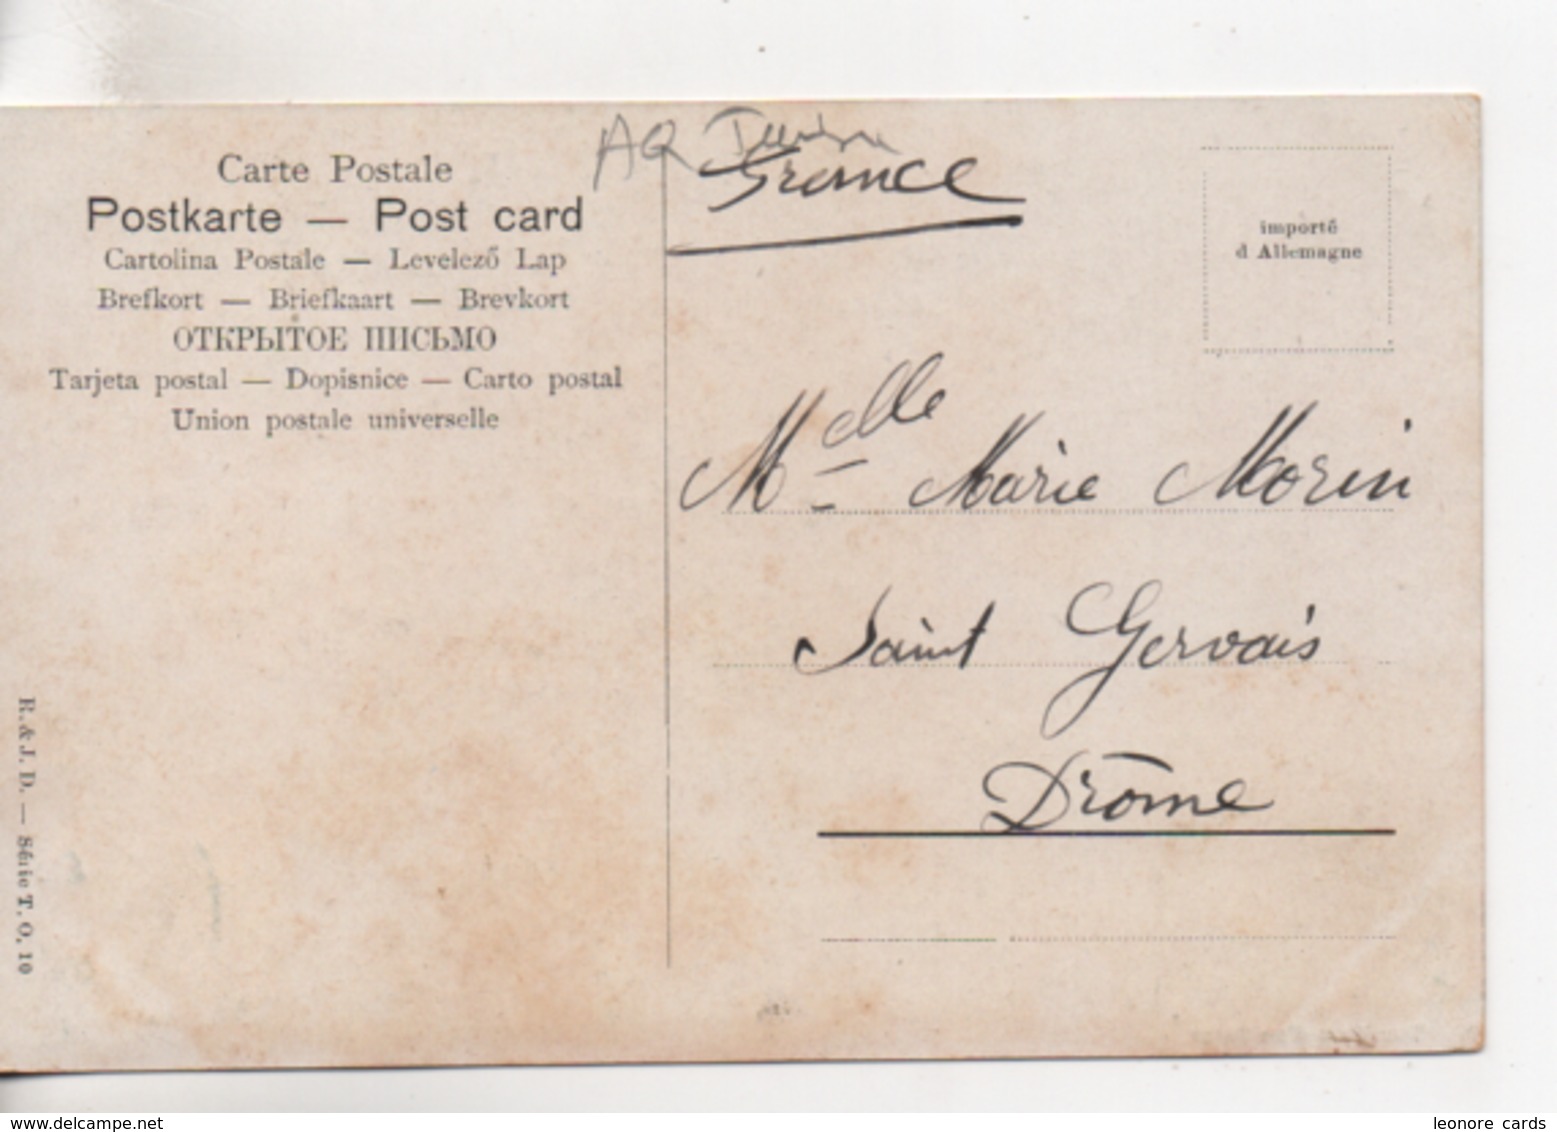 Carte Postale
Postkarte — Post card
Cartolina Postale — Levelező Lap
Brefkort — Briefkaart — Brevkort
ОТКРЫТОЕ ПИСЬМО
Tarjeta postal — Dopisnice — Carto postal
Union postale universelle
R. & J. D. — Série T. O. 10
AQ
France
importé
d Allemagne
Melle Marie Morin
Saint Gervais
Drôme
www.delcampe.net
leonore cards